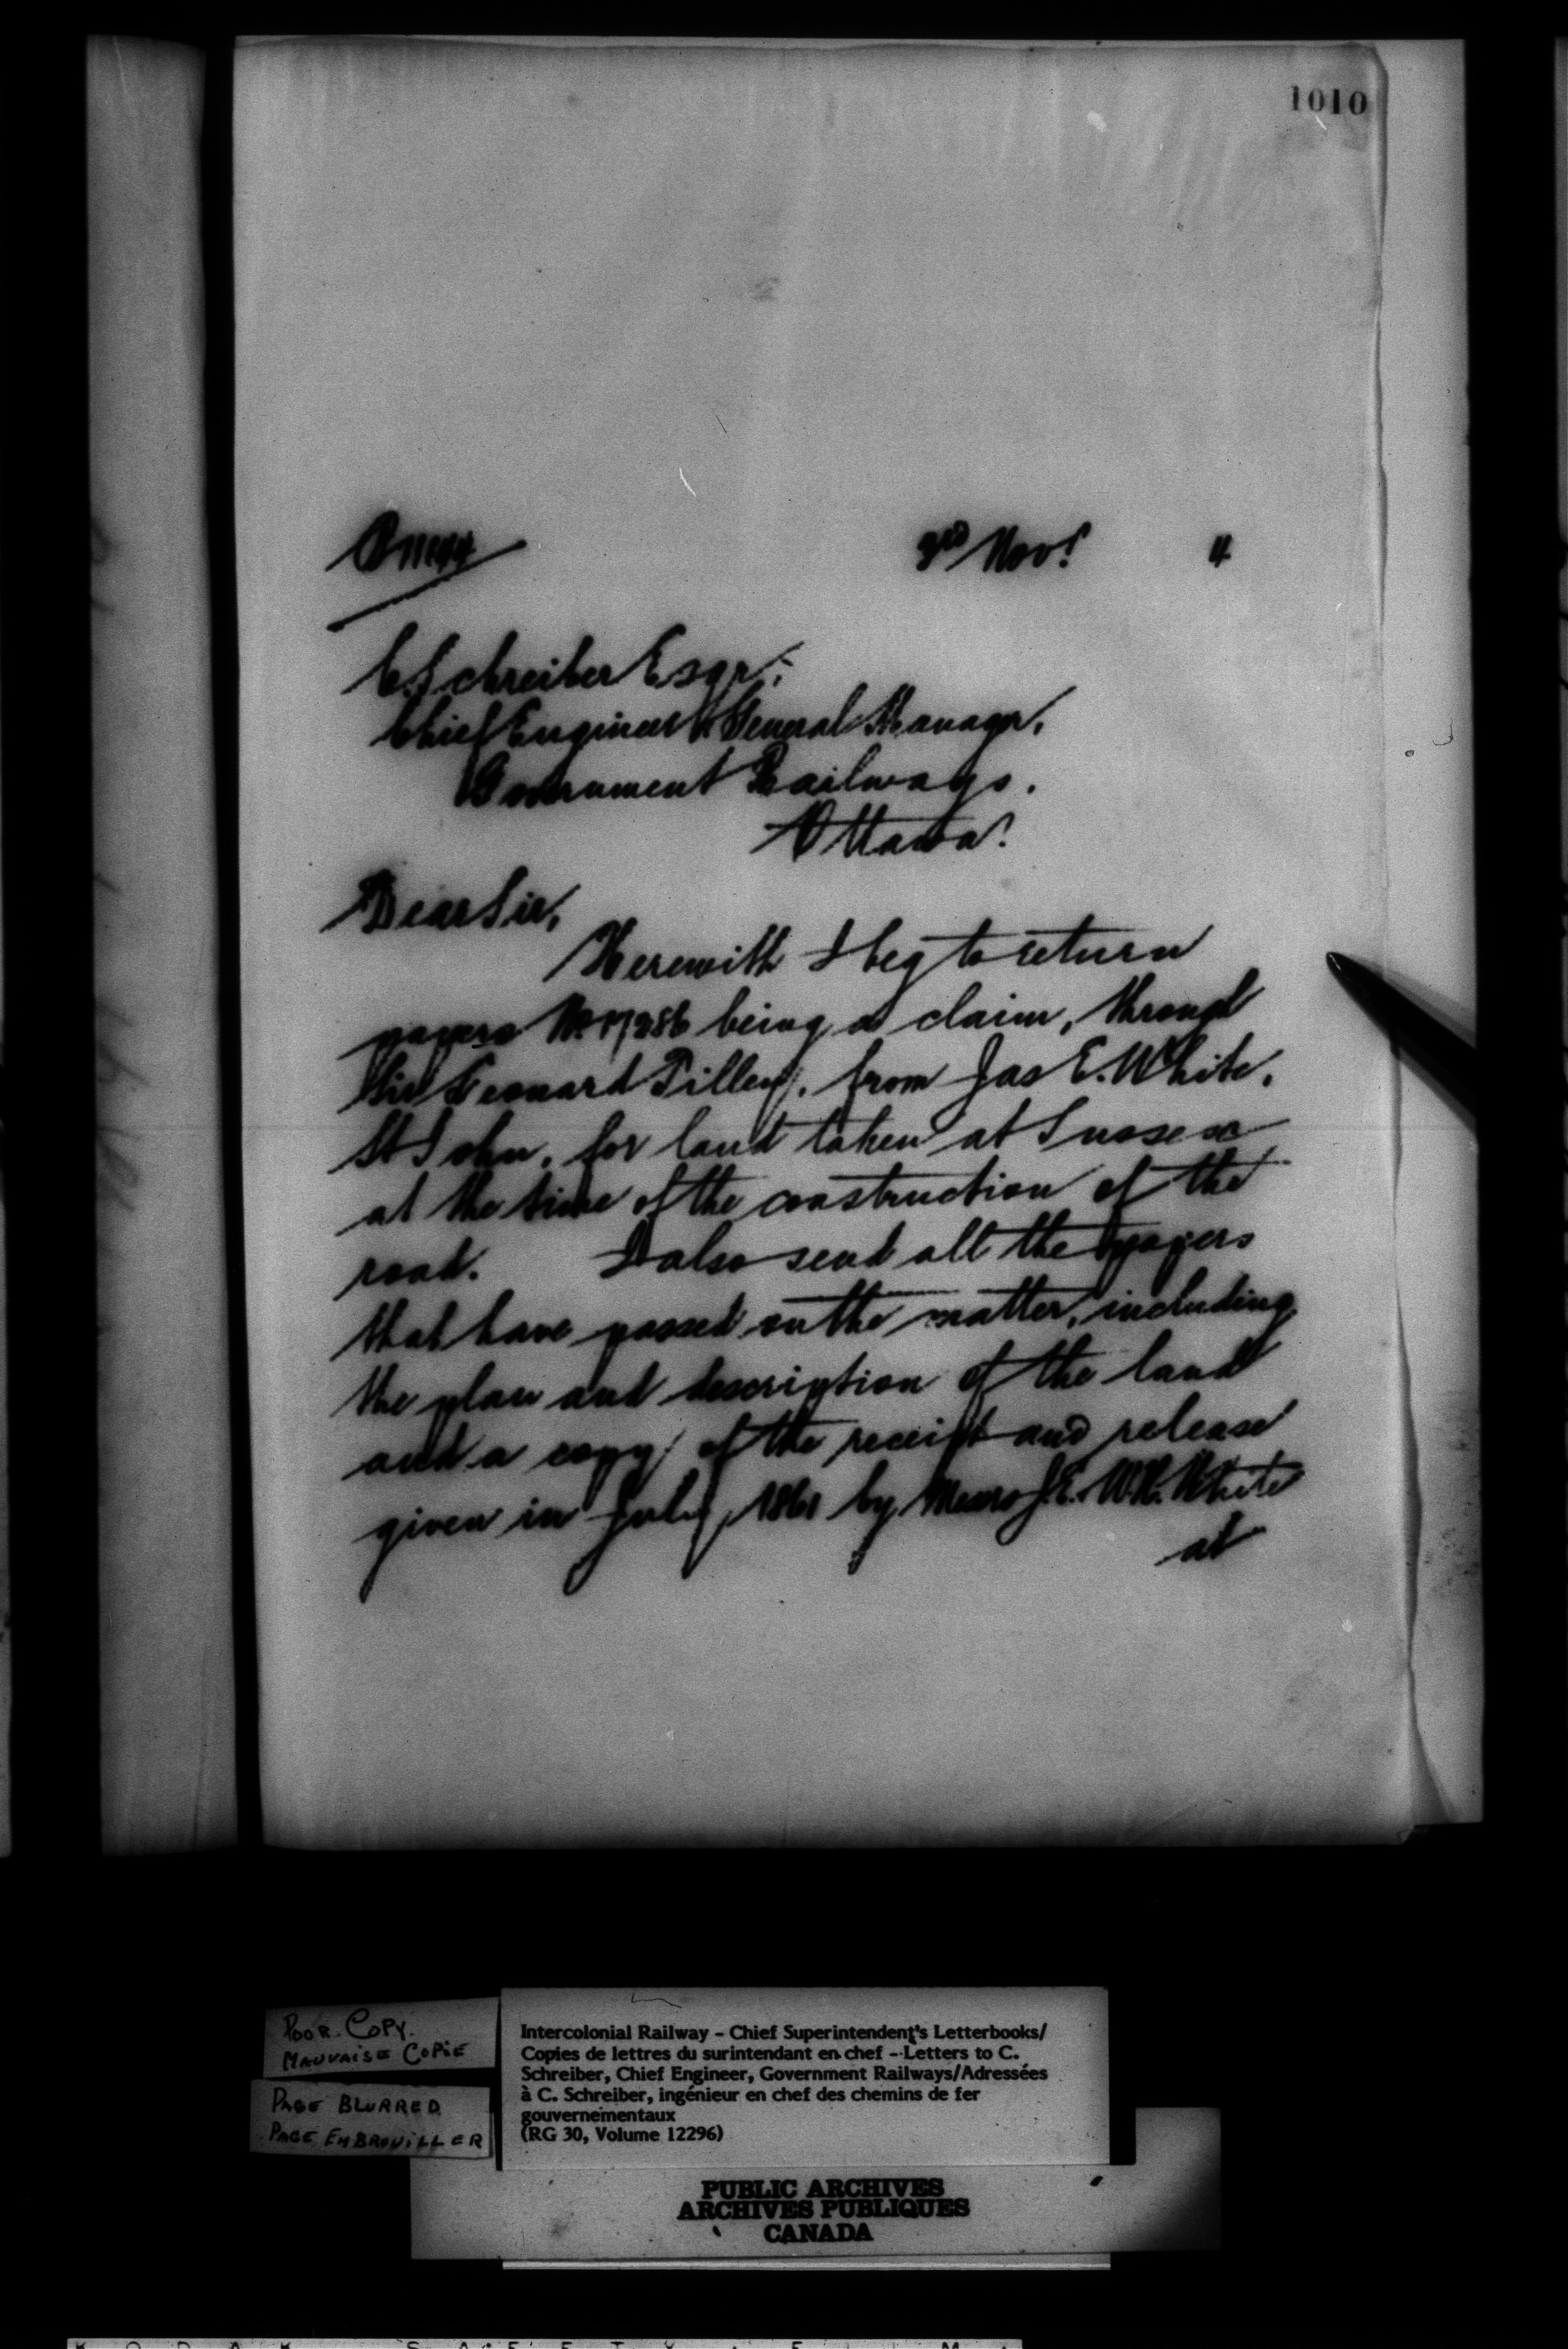 1010
3rd Novr. 4
C. Schreiber Esqr.
Chief Engineer & General Manager,
Government Railways.
Ottawa.
Dear Sir,
Herewith I beg to return
papers No. 17286 being a claim, through
Sir Leonard Tilley, from Jas E. White,
St John, for land taken at Sussex
at the time of the construction of the
road. I also send all the papers
that have passed on the matter, including
the plan and description of the land
and a copy of the receipt and release
given in July, 1861 by Messrs J.E. W.H. White
at
POOR COPY.
MAUVAISE COPIE
PAGE BLURRED
PAGE EMBROUILLER
Intercolonial Railway – Chief Superintendent's Letterbooks/
Copies de lettres du surintendant en chef – Letters to C.
Schreiber, Chief Engineer, Government Railways/Adressées
à C. Schreiber, ingénieur en chef des chemins de fer
gouvernementaux
(RG 30, Volume 12296)
PUBLIC ARCHIVES
ARCHIVES PUBLIQUES
CANADA